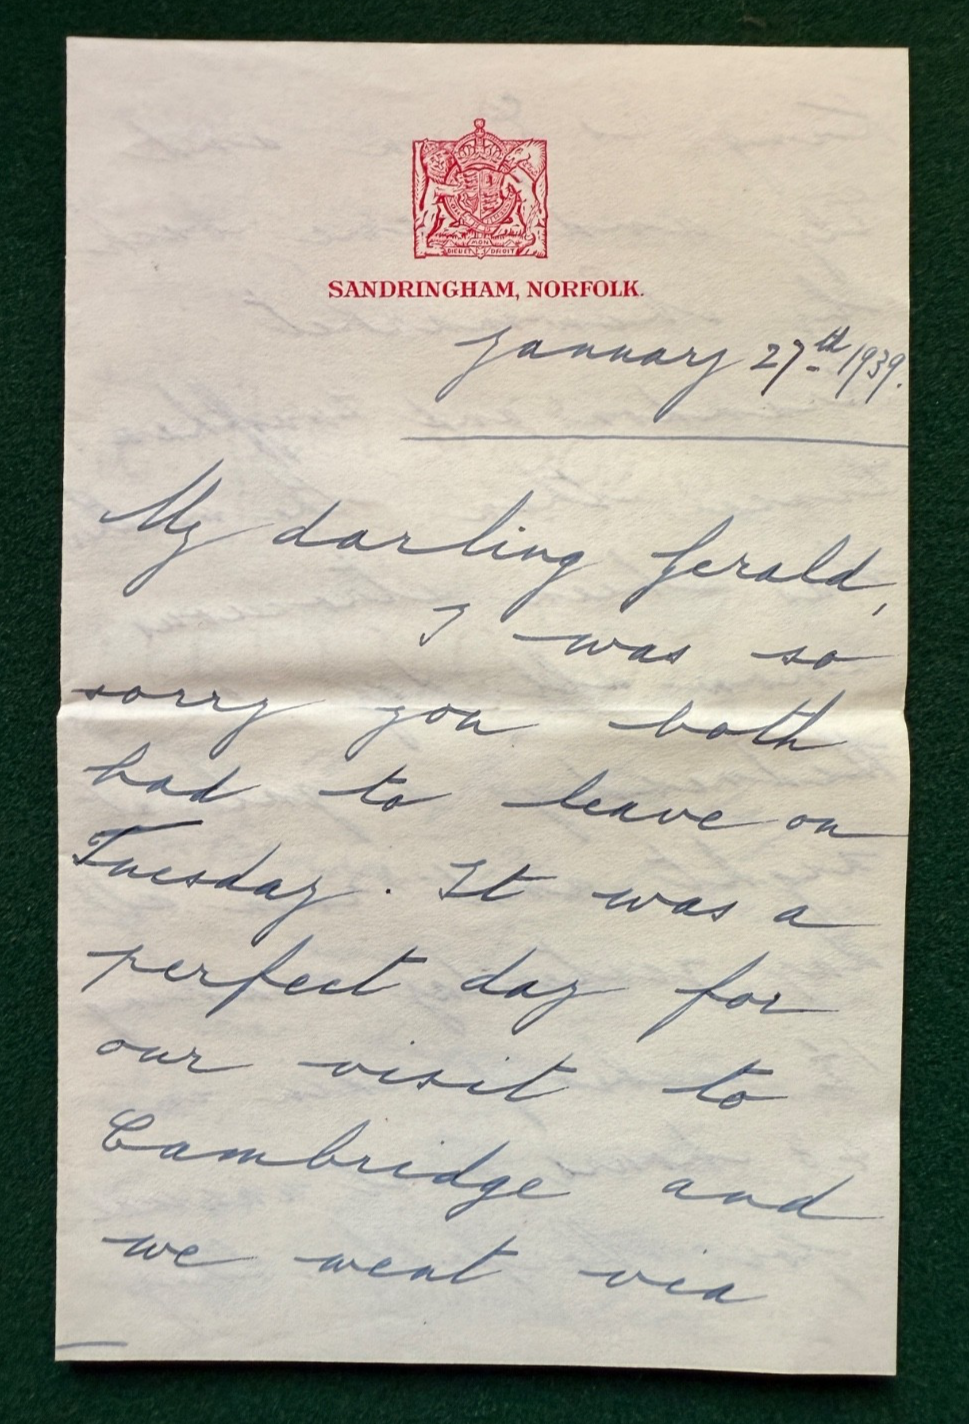 DIEU ET MON DROIT
SANDRINGHAM, NORFOLK.
January 27th 1939.
My darling Gerald,
I was so
sorry you both
had to leave on
Tuesday. It was a
perfect day for
our visit to
Cambridge and
we went via